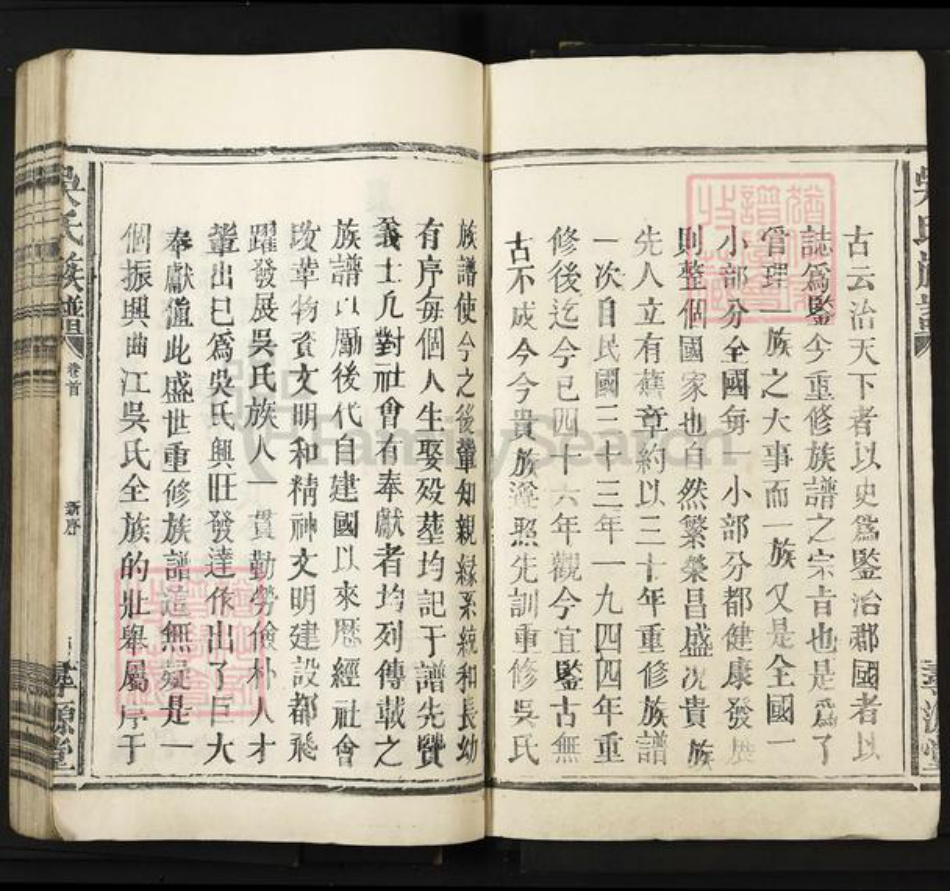 古云治天下者以史爲鑒治郡國者以
誌爲鑒今重修族譜之宗旨也是爲了
管理一族之大事而一族又是全國一
小部分全國每一小部分都健康發展
則整個國家也自然繁榮昌盛况貴族
先人立有舊章約以三十年重修族譜
一次自民國三十三年一九四四年重
修後迄今已四十六年觀今宜鑒古無
古不成今今貴族遵照先訓重修吳氏
族譜使今之後輩知親緣系統和長幼
有序每個人生娶殁塟均記于譜先賢
義士凡對社會有奉獻者均列傳載之
族譜以勵後代自建國以來歷經社會
改革物資文明和精神文明建設都飛
躍發展吳氏族人一貫勤勞儉朴人才
輩出已爲吳氏興旺發達作出了巨大
奉獻值此盛世重修族譜這無疑是一
個振興曲江吳氏全族的壯舉屬序于
吳氏族譜
卷首
新序
FamilySearch